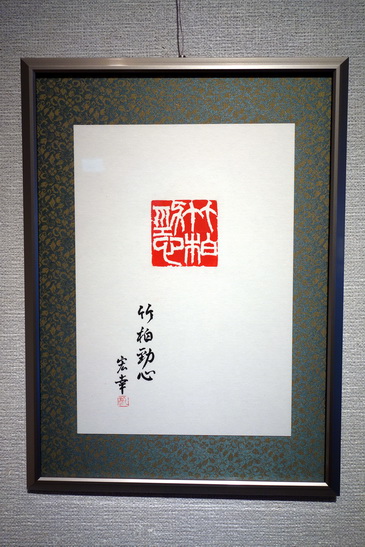 竹柏
勁心
竹柏勁心
宏幸